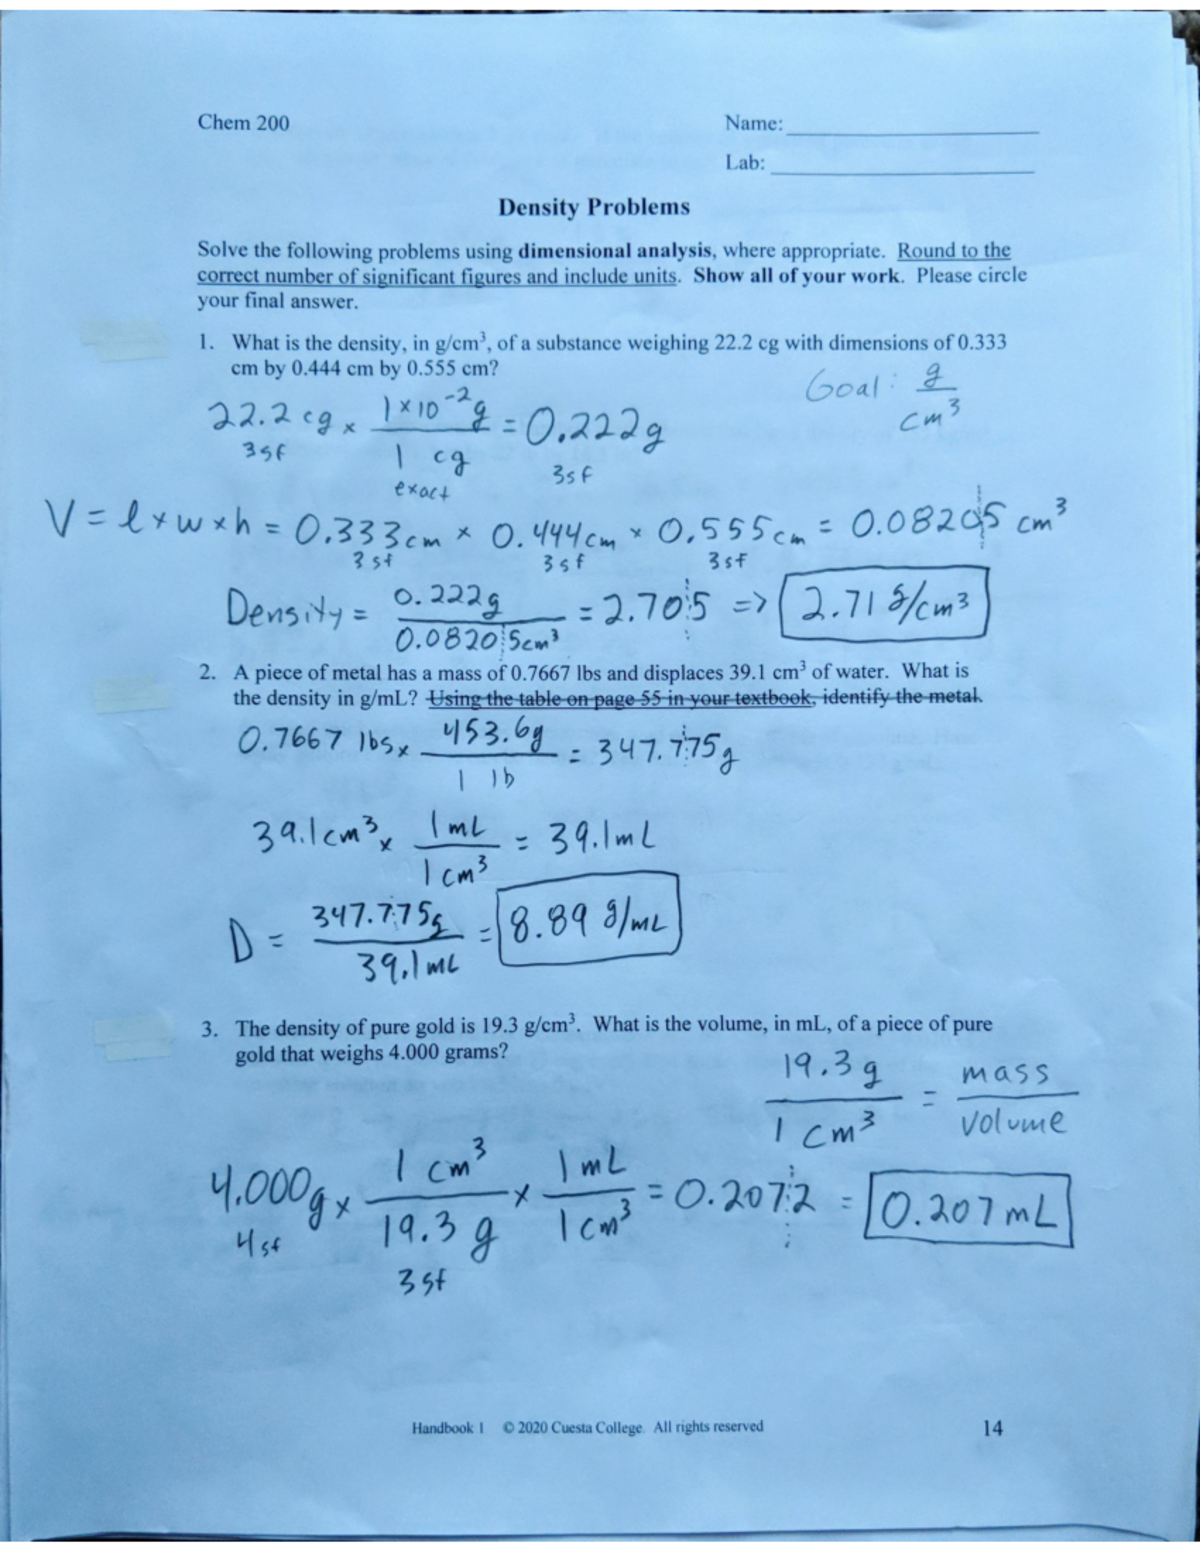 Chem 200
Name:
Lab:
Density Problems
Solve the following problems using dimensional analysis, where appropriate. Round to the
correct number of significant figures and include units. Show all of your work. Please circle
your final answer.
1. What is the density, in g/cm³, of a substance weighing 22.2 cg with dimensions of 0.333
cm by 0.444 cm by 0.555 cm?
Goal: g/cm³
22.2 cg × 1×10⁻²g / 1 cg = 0.222g
3sf exact 3sf
V = l×w×h = 0.333cm × 0.444cm × 0.555cm = 0.08205 cm³
3sf 3sf 3sf
Density = 0.222g / 0.08205cm³ = 2.705 => 2.71 g/cm³
2. A piece of metal has a mass of 0.7667 lbs and displaces 39.1 cm³ of water. What is
the density in g/mL? Using the table on page 55 in your textbook, identify the metal.
0.7667 lbs × 453.6g / 1 lb = 347.775g
39.1cm³ × 1mL / 1cm³ = 39.1mL
D = 347.775g / 39.1mL = 8.89 g/mL
3. The density of pure gold is 19.3 g/cm³. What is the volume, in mL, of a piece of pure
gold that weighs 4.000 grams?
19.3g / 1 cm³ = mass / volume
4.000g × 1 cm³ / 19.3 g × 1mL / 1cm³ = 0.2072 = 0.207mL
4sf 3sf
Handbook 1 © 2020 Cuesta College. All rights reserved
14